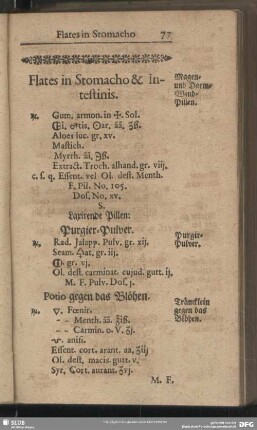 Flates in Stomacho 77
Flates in Stomacho & In-
testinis.
Magen-
und Darm-
Wend-
Pillen.
℞. Gum. armon. in 🜊. Sol.
āā, ʒß.
Aloes suc. gr. xv.
Mastich.
Myrrh. āā, ℈ß.
Extract. Troch. alhand. gr. viij.
c. s. q. Essent. vel Ol. dest. Menth.
F. Pil. No. 105.
Dos. No. xv.
S.
Laxirende Pillen:
Purgier-Pulver.
Purgir-
Pulver.
℞. Rad. Jalapp. Pulv. gr. xij.
Seam. Hat. gr. iij.
gr. vj.
Ol. dest. carminat. cujusd. gutt. ij,
M. F. Pulv. Dos. j.
Potio gegen das Blöhen.
Träncklein
gegen das
Blöhen.
℞. ▽. Fœnic.
- - Menth. āā. ℥iß.
- - Carmin. o. V. ℥j.
anisi.
Essent. cort. arant. aa, ʒij
Ol. dest. macis. gutt. v.
Syr. Cort. aurant. ʒvj.
M. F.
SLUB
DFG